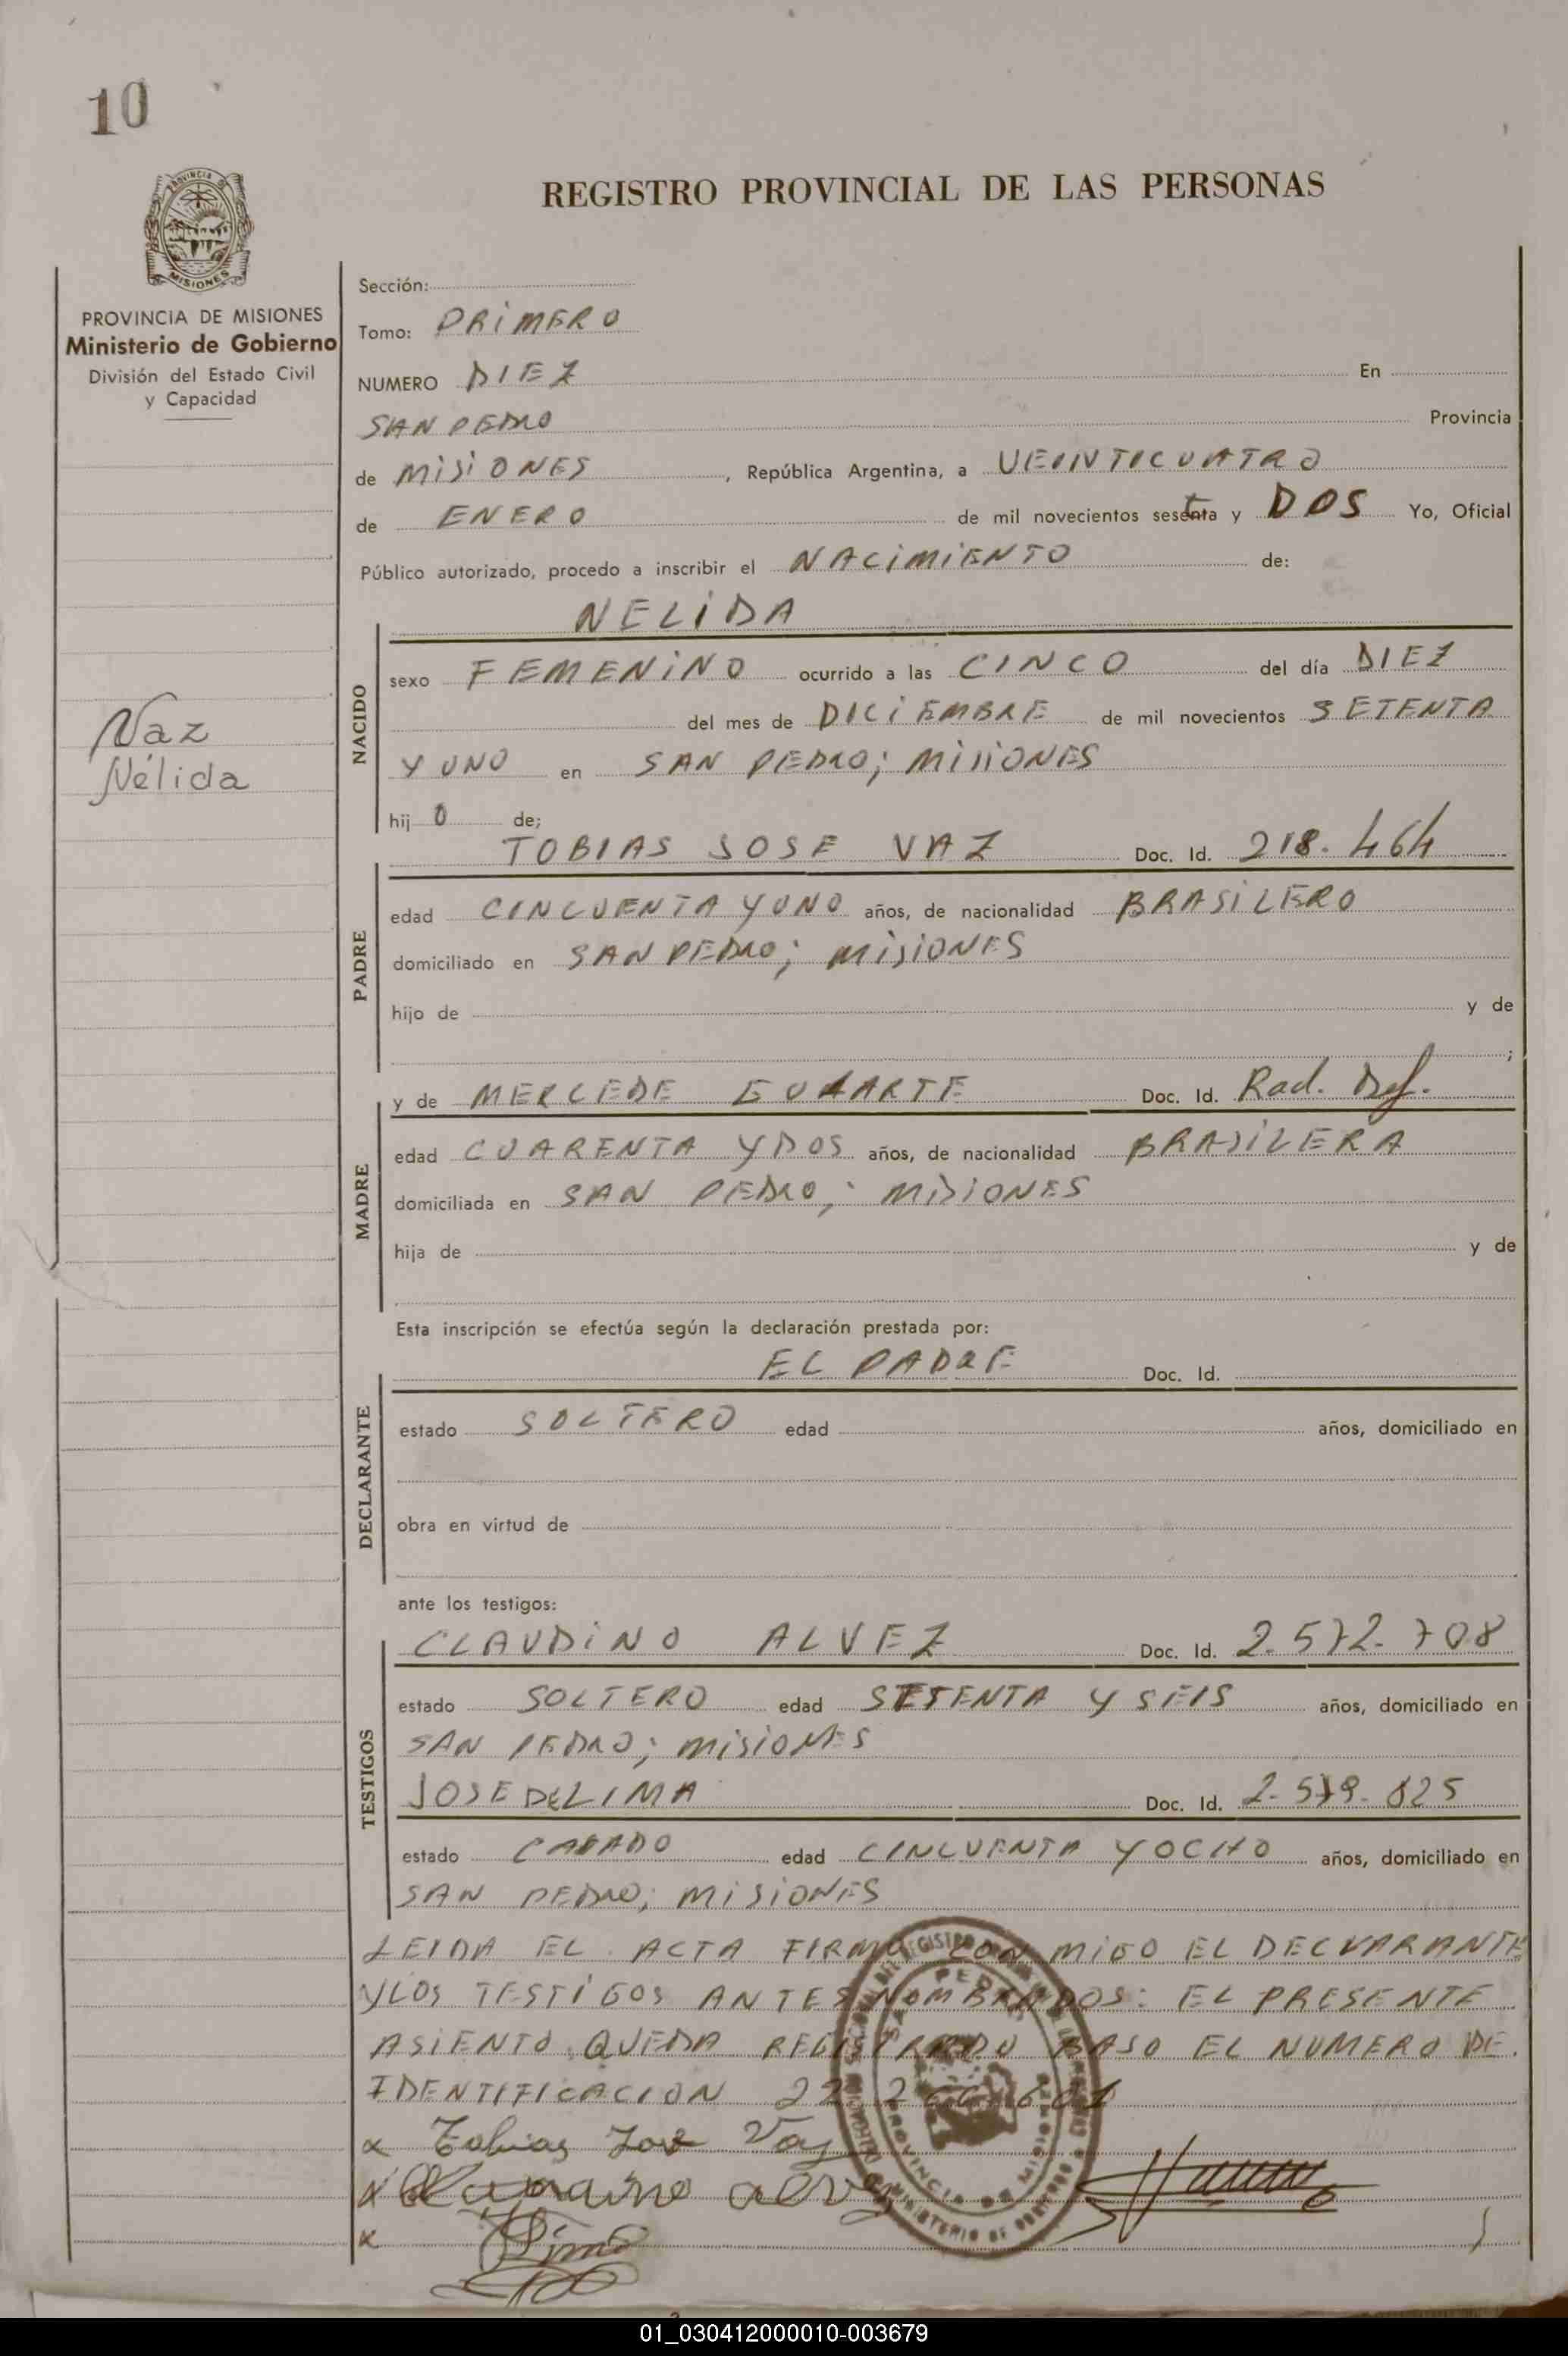 10
REGISTRO PROVINCIAL DE LAS PERSONAS
PROVINCIA
MISIONES
PROVINCIA DE MISIONES
Ministerio de Gobierno
División del Estado Civil
y Capacidad
Vaz
Nélida
Sección:
Tomo: PRIMERO
NUMERO DIEZ En
SAN PEDRO Provincia
de MISIONES, República Argentina, a VEINTICUATRO
de ENERO de mil novecientos setenta y DOS Yo, Oficial
Público autorizado, procedo a inscribir el NACIMIENTO de:
NELIDA
NACIDO
sexo FEMENINO ocurrido a las CINCO del día DIEZ
del mes de DICIEMBRE de mil novecientos SETENTA
Y UNO en SAN PEDRO; MISIONES
hij O de;
TOBIAS JOSE VAZ Doc. Id. 218.464
PADRE
edad CINCUENTA Y UNO años, de nacionalidad BRASILERO
domiciliado en SAN PEDRO; MISIONES
hijo de y de
;
y de MERCEDE Doc. Id. Rad. Def.
MADRE
edad CUARENTA Y DOS años, de nacionalidad BRASILERA
domiciliada en SAN PEDRO; MISIONES
hija de y de
Esta inscripción se efectúa según la declaración prestada por:
EL PADRE Doc. Id.
DECLARANTE
estado SOLTERO edad años, domiciliado en
obra en virtud de
ante los testigos:
CLAUDINO ALVEZ Doc. Id. 2.572.708
TESTIGOS
estado SOLTERO edad SETENTA Y SEIS años, domiciliado en
SAN PEDRO; MISIONES
JOSE DE LIMA Doc. Id. 2.579.825
estado CASADO edad CINCUENTA Y OCHO años, domiciliado en
SAN PEDRO; MISIONES
LEIDA EL ACTA FIRMA CON MIGO EL DECLARANTE
Y LOS TESTIGOS ANTES NOMBRADOS: EL PRESENTE
ASIENTO QUEDA REGISTRADO BAJO EL NUMERO DE
IDENTIFICACION 22
x Tobias José Vaz
x
x Lima
01_030412000010-003679